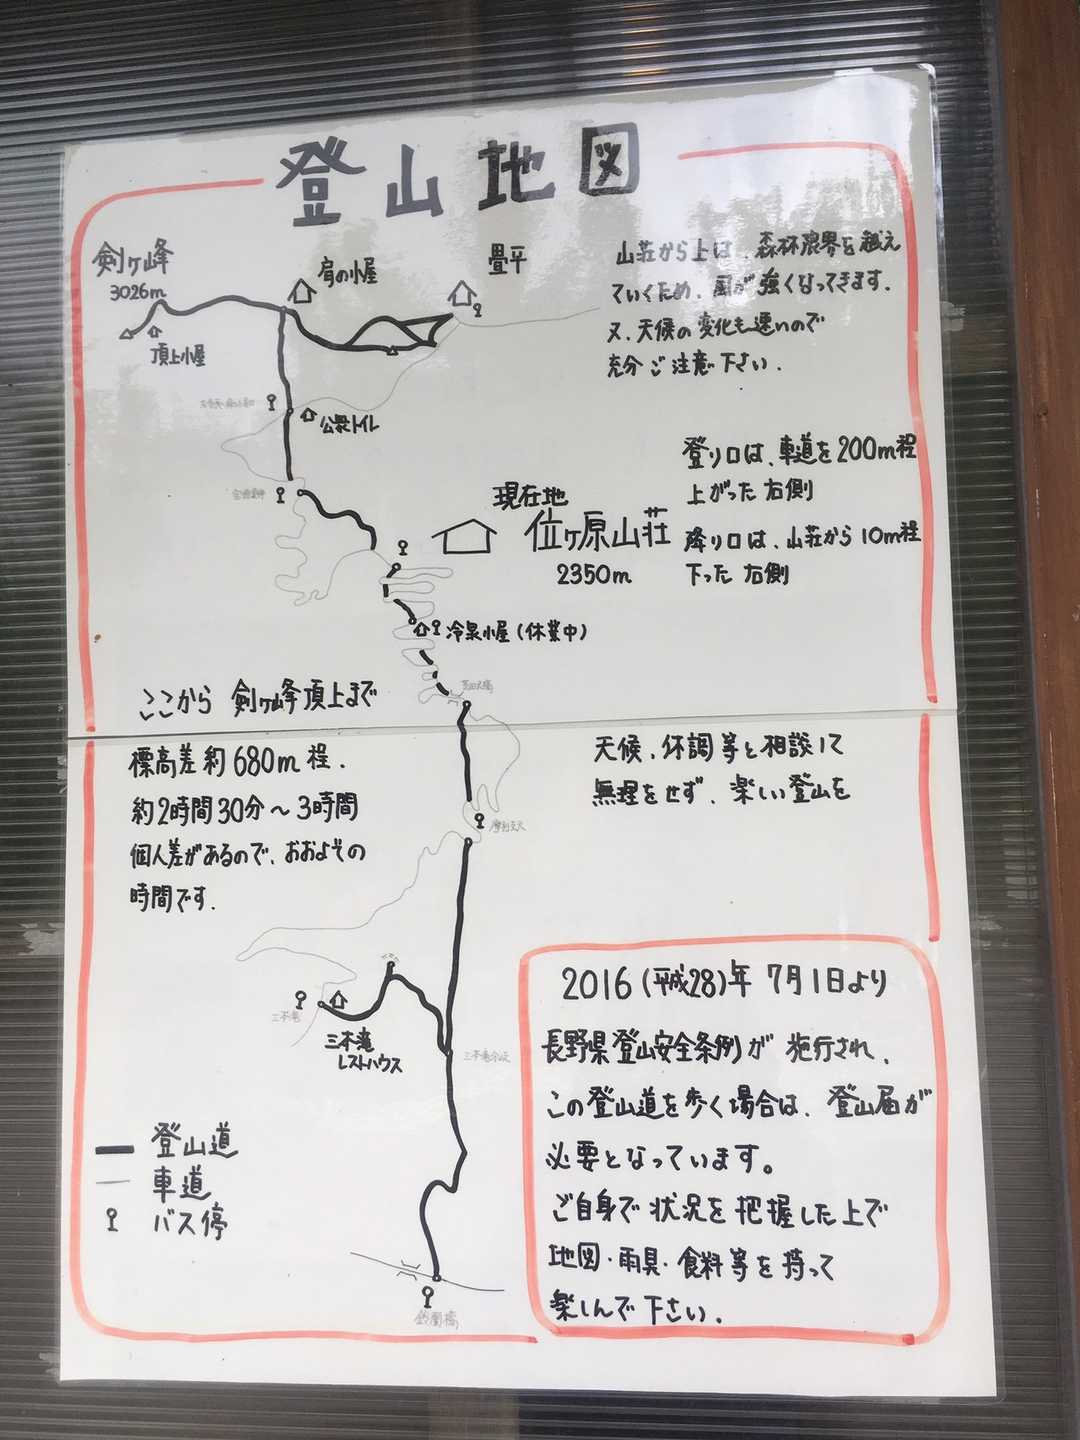 登山地図
剣ヶ峰
3026m
頂上小屋
肩の小屋
畳平
山荘から上は、森林限界を越え
ていくため、風が強くなってきます.
又、天候の変化も速いので
充分ご注意下さい.
公衆トイレ
登り口は、車道を200m程
上がった右側
現在地
位ヶ原山荘
2350m
降り口は、山荘から10m程
下った右側
冷泉小屋(休業中)
ここから剣ヶ峰頂上まで
標高差約680m程.
約2時間30分～3時間
個人差があるので、おおよその
時間です.
天候、体調等と相談して
無理をせず、楽しい登山を
摩利支天
三本滝
三本滝
レストハウス
登山道
車道
バス停
鈴蘭橋
2016(平成28)年 7月1日より
長野県登山安全条例が施行され、
この登山道を歩く場合は、登山届が
必要となっています。
ご自身で状況を把握した上で
地図・雨具・食料等を持って
楽しんで下さい.